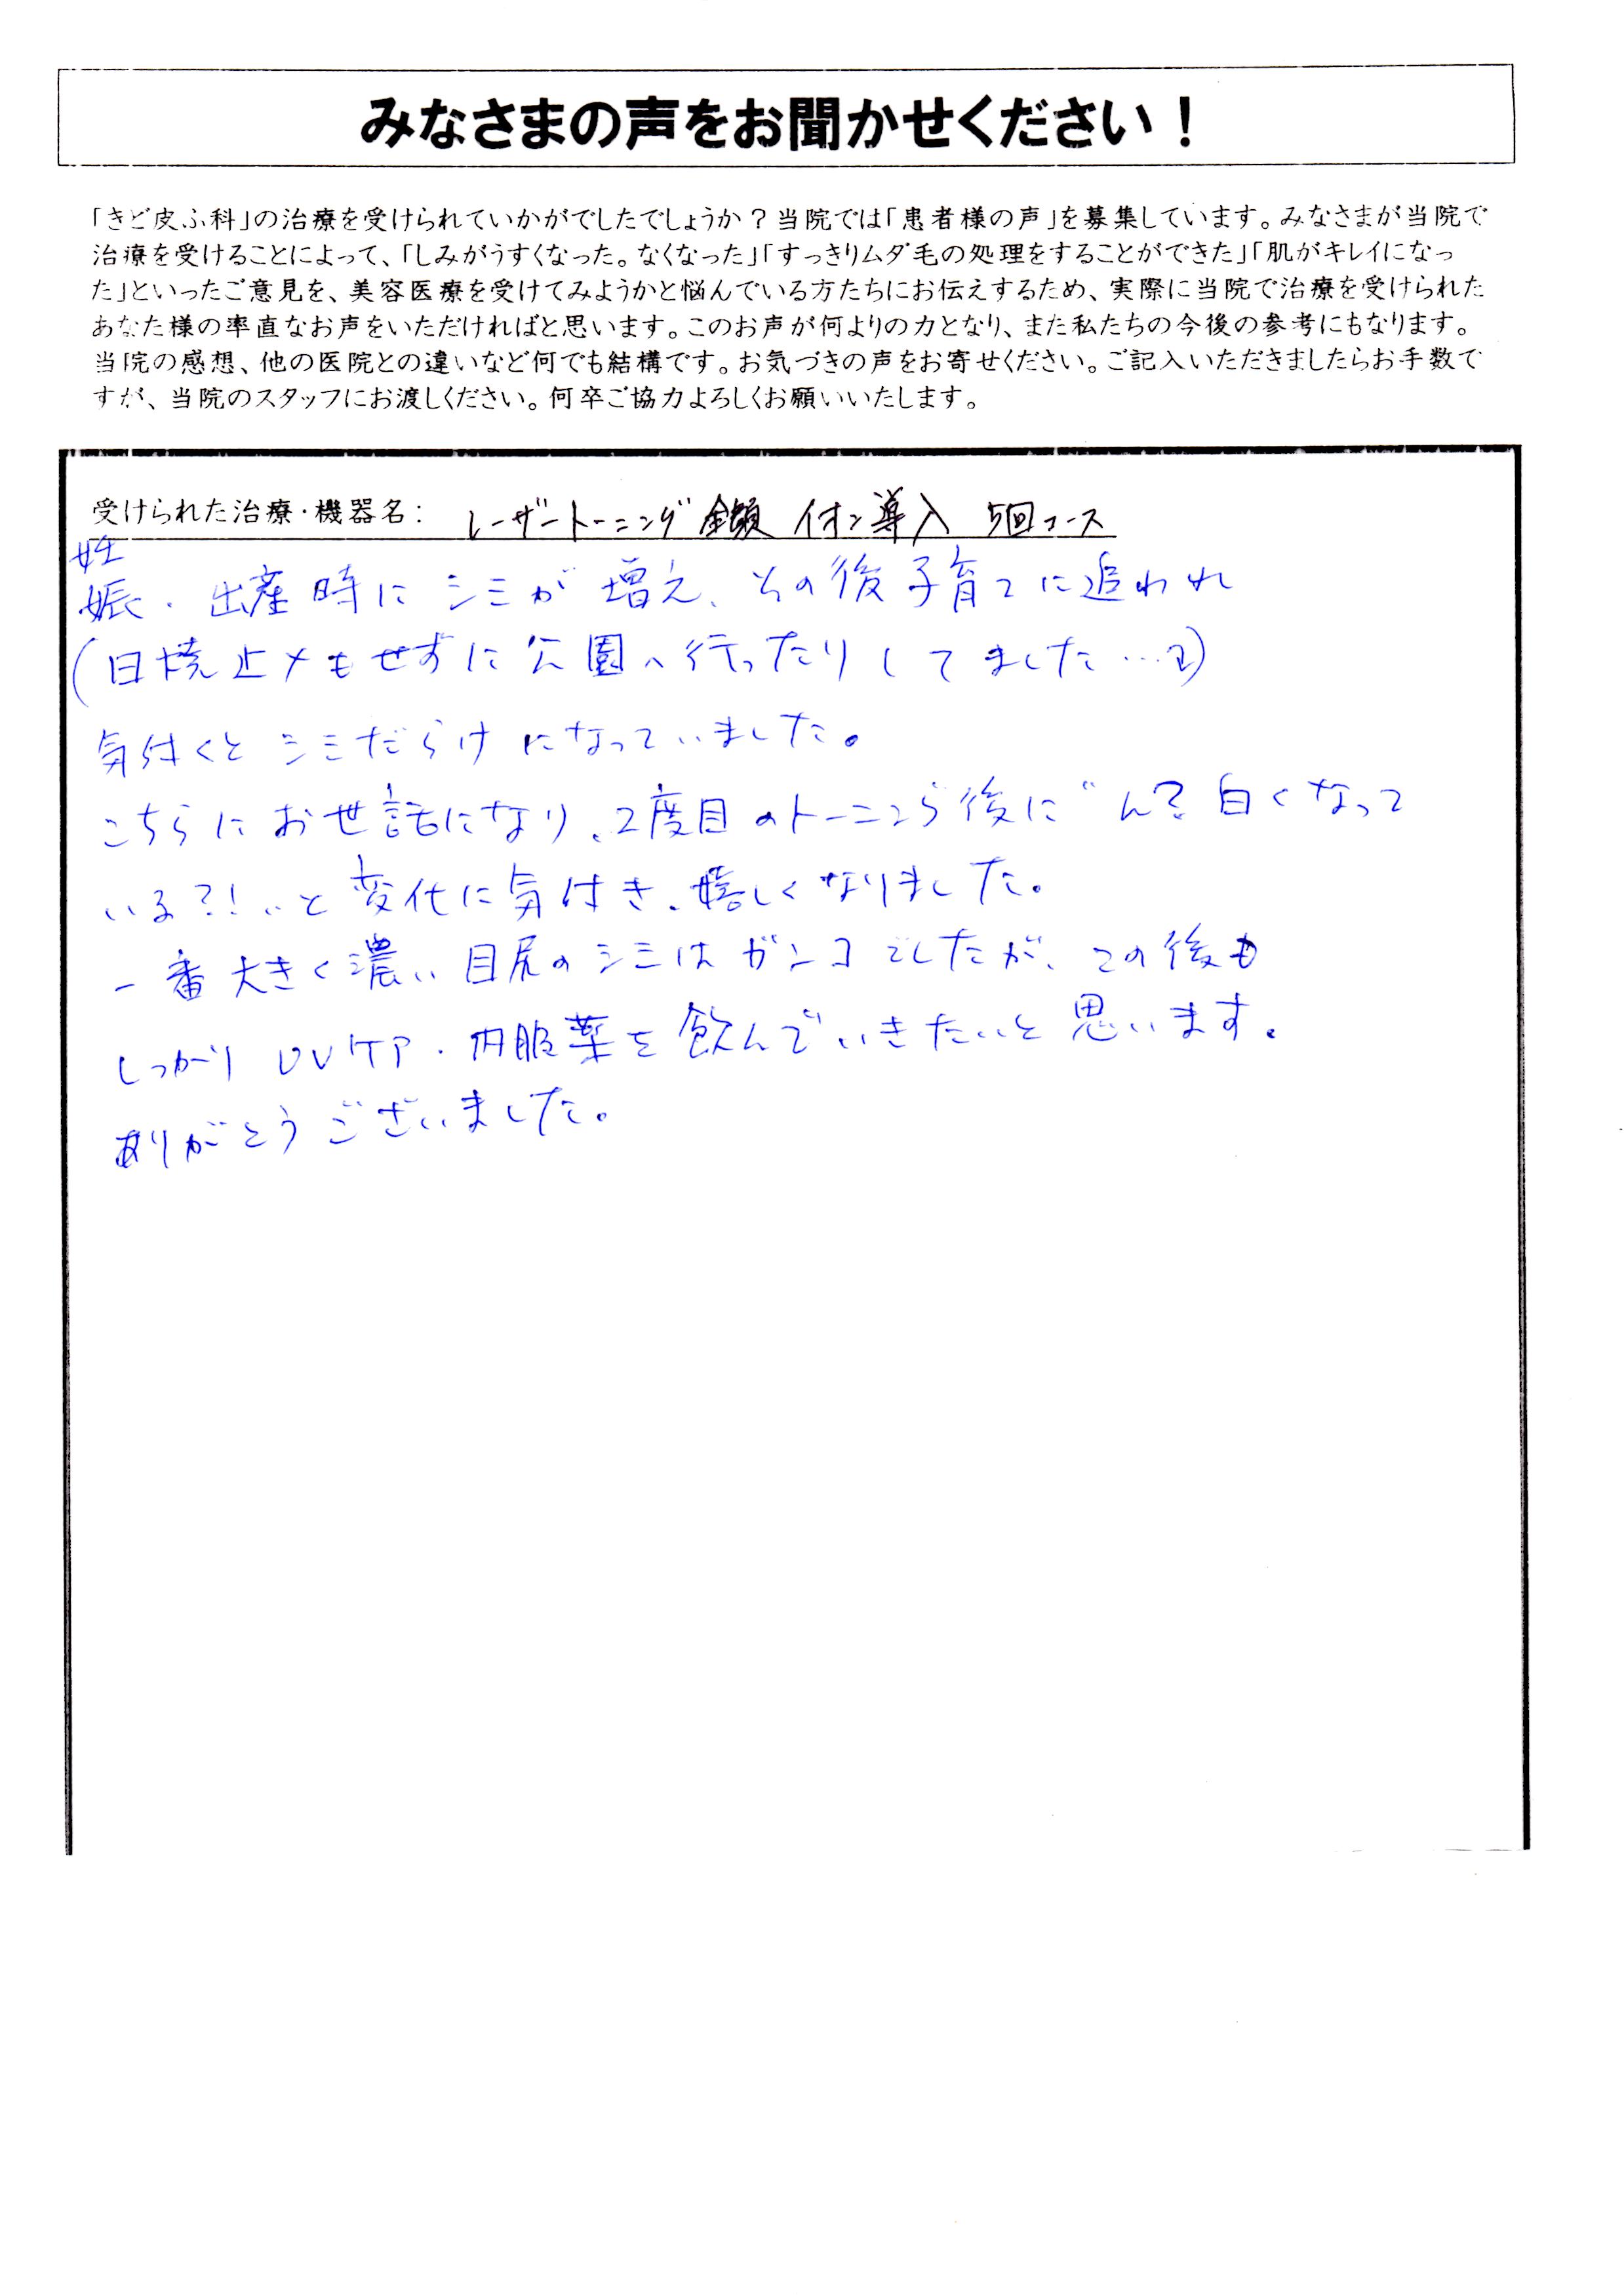 みなさまの声をお聞かせください！
「きど皮ふ科」の治療を受けられていかがでしたでしょうか？当院では「患者様の声」を募集しています。みなさまが当院で
治療を受けることによって、「しみがうすくなった。なくなった」「すっきりムダ毛の処理をすることができた」「肌がキレイになっ
た」といったご意見を、美容医療を受けてみようかと悩んでいる方たちにお伝えするため、実際に当院で治療を受けられた
あなた様の率直なお声をいただければと思います。このお声が何よりの力となり、また私たちの今後の参考にもなります。
当院の感想、他の医院との違いなど何でも結構です。お気づきの声をお寄せください。ご記入いただきましたらお手数で
すが、当院のスタッフにお渡しください。何卒ご協力よろしくお願いいたします。
受けられた治療・機器名： レーザートーニング 全顔 イオン導入 5回コース
妊
娠・出産時にシミが増え、その後子育てに追われ
(日焼止メもせずに公園へ行ったりしてました…)
気付くとシミだらけになっていました。
こちらにお世話になり、2度目のトーニング後に"ん？白くなって
いる？！"と変化に気付き、嬉しくなりました。
一番大きく濃い目尻のシミはガンコでしたが、この後も
しっかりUVケア・内服薬を飲んでいきたいと思います。
ありがとうございました。